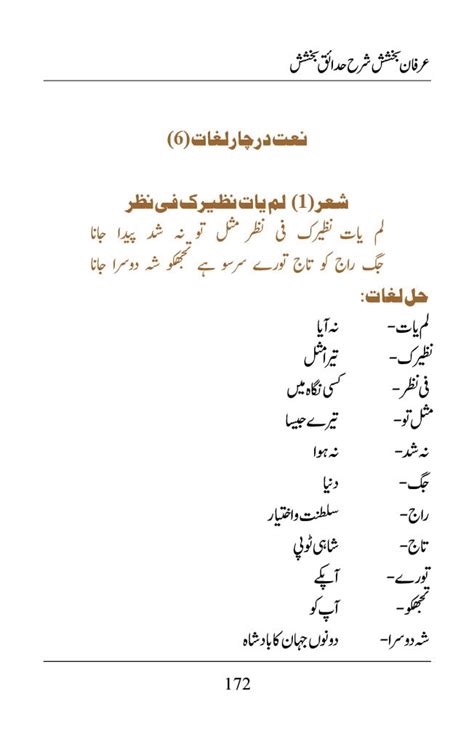 عرفان بخشش شرح حدائق بخشش
نعت در چار لغات (6)
شعر (1) لم یات نظیرک فی نظر
لم یات نظیرک فی نظر مثل تو نہ شد پیدا جانا
جگ راج کو تاج تورے سر سو ہے تجھکو شہ دوسرا جانا
حل لغات:
لم یات- نہ آیا
نظیرک- تیرا مثل
فی نظر- کسی نگاہ میں
مثل تو- تیرے جیسا
نہ شد- نہ ہوا
جگ- دنیا
راج- سلطنت و اختیار
تاج- شاہی ٹوپی
تورے- آپکے
تجھکو- آپ کو
شہ دوسرا- دونوں جہان کا بادشاہ
172